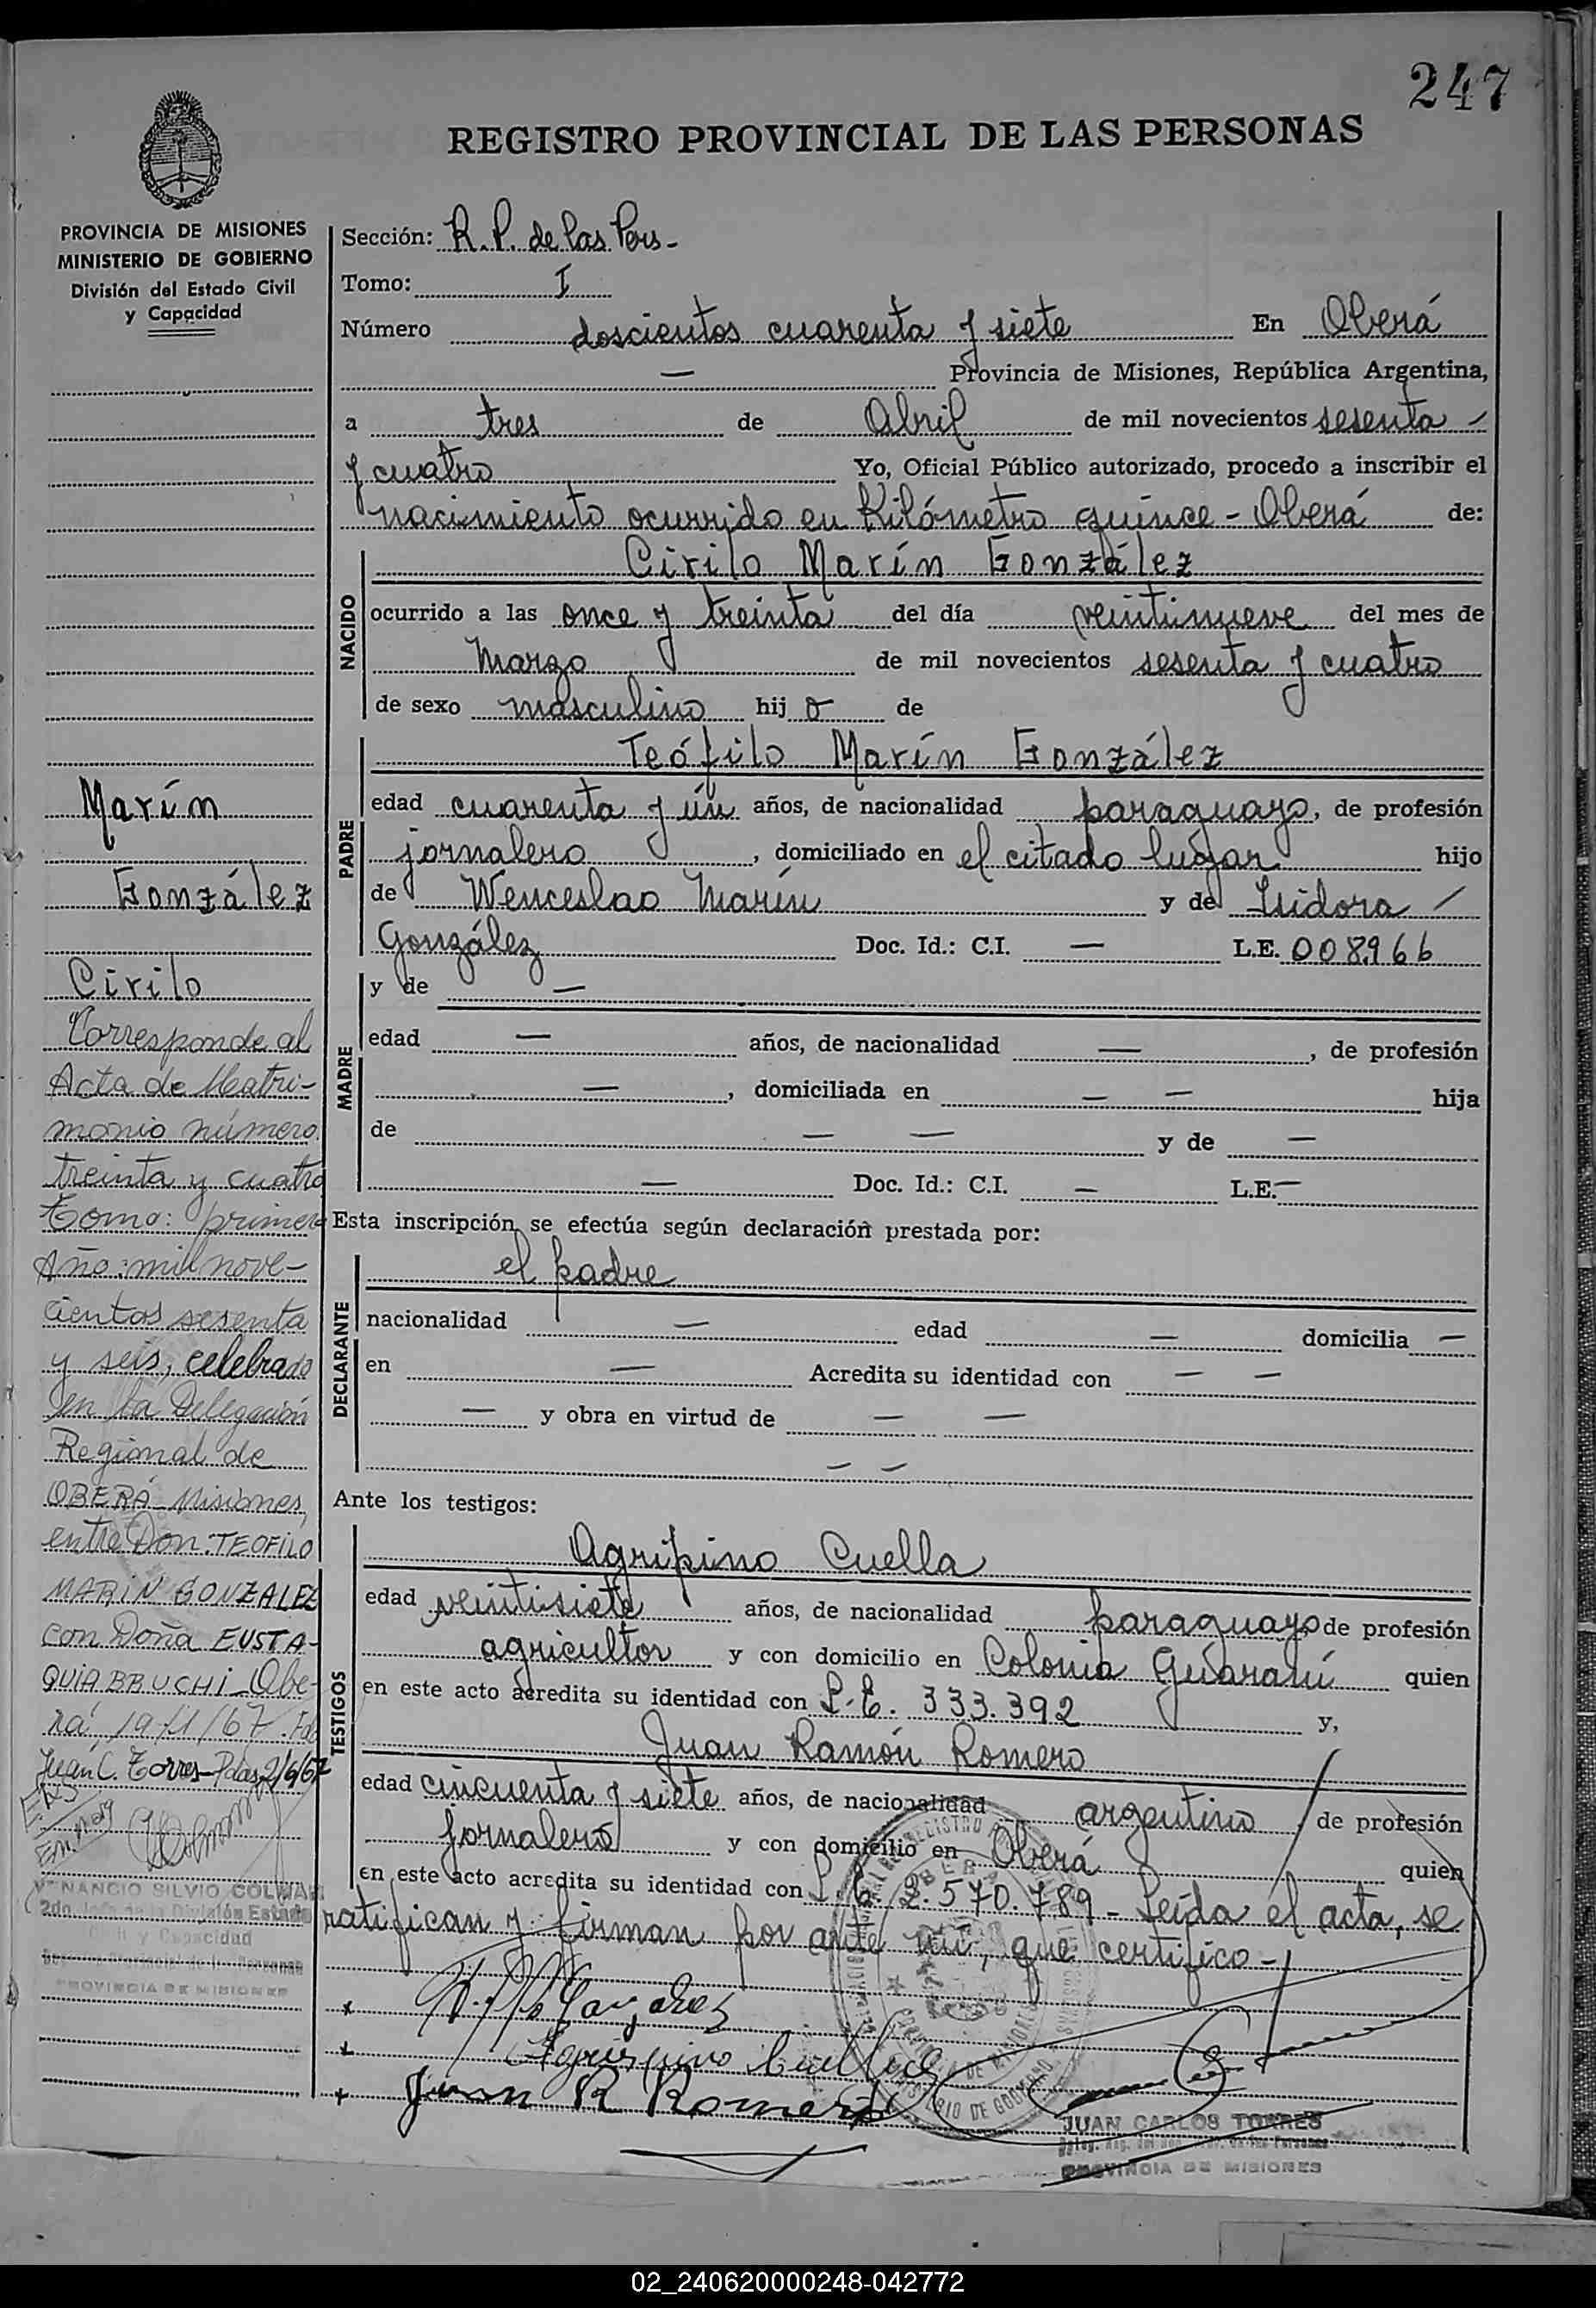 247
REGISTRO PROVINCIAL DE LAS PERSONAS
PROVINCIA DE MISIONES
MINISTERIO DE GOBIERNO
División del Estado Civil
y Capacidad
Marín
González
Cirilo
Corresponde al
Acta de Matri-
monio número
treinta y cuatro
Tomo: primero
Año: mil nove-
cientos sesenta
y seis, celebrado
en la Delegación
Regional de
OBERÁ Misiones,
entre Don: TEOFILO
MARIN GONZALEZ
con Doña EUSTA-
QUIA BRUCHI _ Obe-
rá, 19/1/67.
Juan C. Torres-Pdas 2/6/67
VENANCIO SILVIO COLMAN
2do. Jefe de la División Estado
Civil y Capacidad
PROVINCIA DE MISIONES
Sección: R. P. de las Pers-
Tomo: I
Número doscientos cuarenta y siete En Oberá
— Provincia de Misiones, República Argentina,
a tres de Abril de mil novecientos sesenta —
y cuatro Yo, Oficial Público autorizado, procedo a inscribir el
nacimiento ocurrido en Kilómetro quince - Oberá de:
NACIDO
Cirilo Marín González
ocurrido a las once y treinta del día veintinueve del mes de
Marzo de mil novecientos sesenta y cuatro
de sexo masculino hij o de
PADRE
Teófilo Marín González
edad cuarenta y ún años, de nacionalidad paraguayo, de profesión
jornalero, domiciliado en el citado lugar hijo
de Wenceslao Marín y de Isidora —
González Doc. Id.: C.I. — L.E. 008966
MADRE
y de —
edad — años, de nacionalidad —, de profesión
—, domiciliada en — — hija
de — — y de —
— Doc. Id.: C.I. — L.E. —
Esta inscripción se efectúa según declaración prestada por:
DECLARANTE
el padre
nacionalidad — edad — domicilia —
en — Acredita su identidad con — —
— y obra en virtud de — —
— —
Ante los testigos:
TESTIGOS
Agripino Cuella
edad veintisiete años, de nacionalidad paraguayo de profesión
agricultor y con domicilio en Colonia Guaraní quien
en este acto acredita su identidad con L.E. 333.392 y,
Juan Ramón Romero
edad cincuenta y siete años, de nacionalidad argentino, de profesión
jornalero y con domicilio en Oberá quien
en este acto acredita su identidad con L.E. 2.570.789 - Leída el acta, se
ratifican y firman por ante mí, que certifico -
Juan R Romero
JUAN CARLOS TORRES
PROVINCIA DE MISIONES
02_240620000248-042772